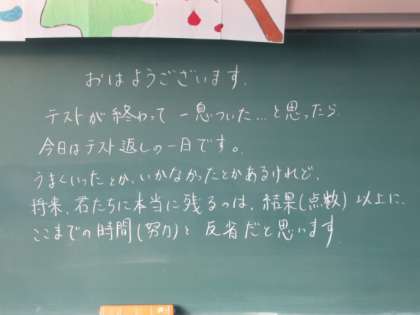 おはようございます.
テストが終わって 一息ついた…と思ったら
今日はテスト返しの一日です。
うまくいったとか、いかなかったとかあるけれど、
将来、君たちに本当に残るのは、結果(点数)以上に、
ここまでの時間(努力)と 反省だと思います.